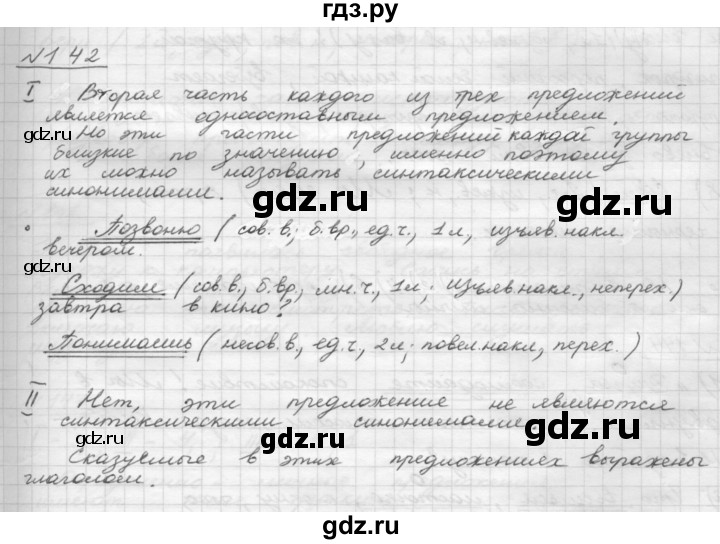 гдз.ру
№142
I Вторая часть каждого из трех предложений
является односоставным предложением.
Но эти части предложений каждой группы
близкие по значению, именно поэтому
их можно называть синтаксическими
синонимами.
gdz.ru gdz.ru
• Позвоню (сов.в; б.вр, ед.ч., 1л, изъяв.накл.
вечером.
Сходим (сов.в., б.вр; мн.ч., 1л; изъяв.накл., неперех.)
завтра в кино?
gdz.ru gdz.ru
Понимаешь (несов.в, ед.ч, 2л; повел.накл, перех.)
II Нет, эти предложение не являются
синтаксическими синонимами.
gdz.ru gdz.ru
Сказуемые в этих предложениях выражены
глаголом.
gdz.ru